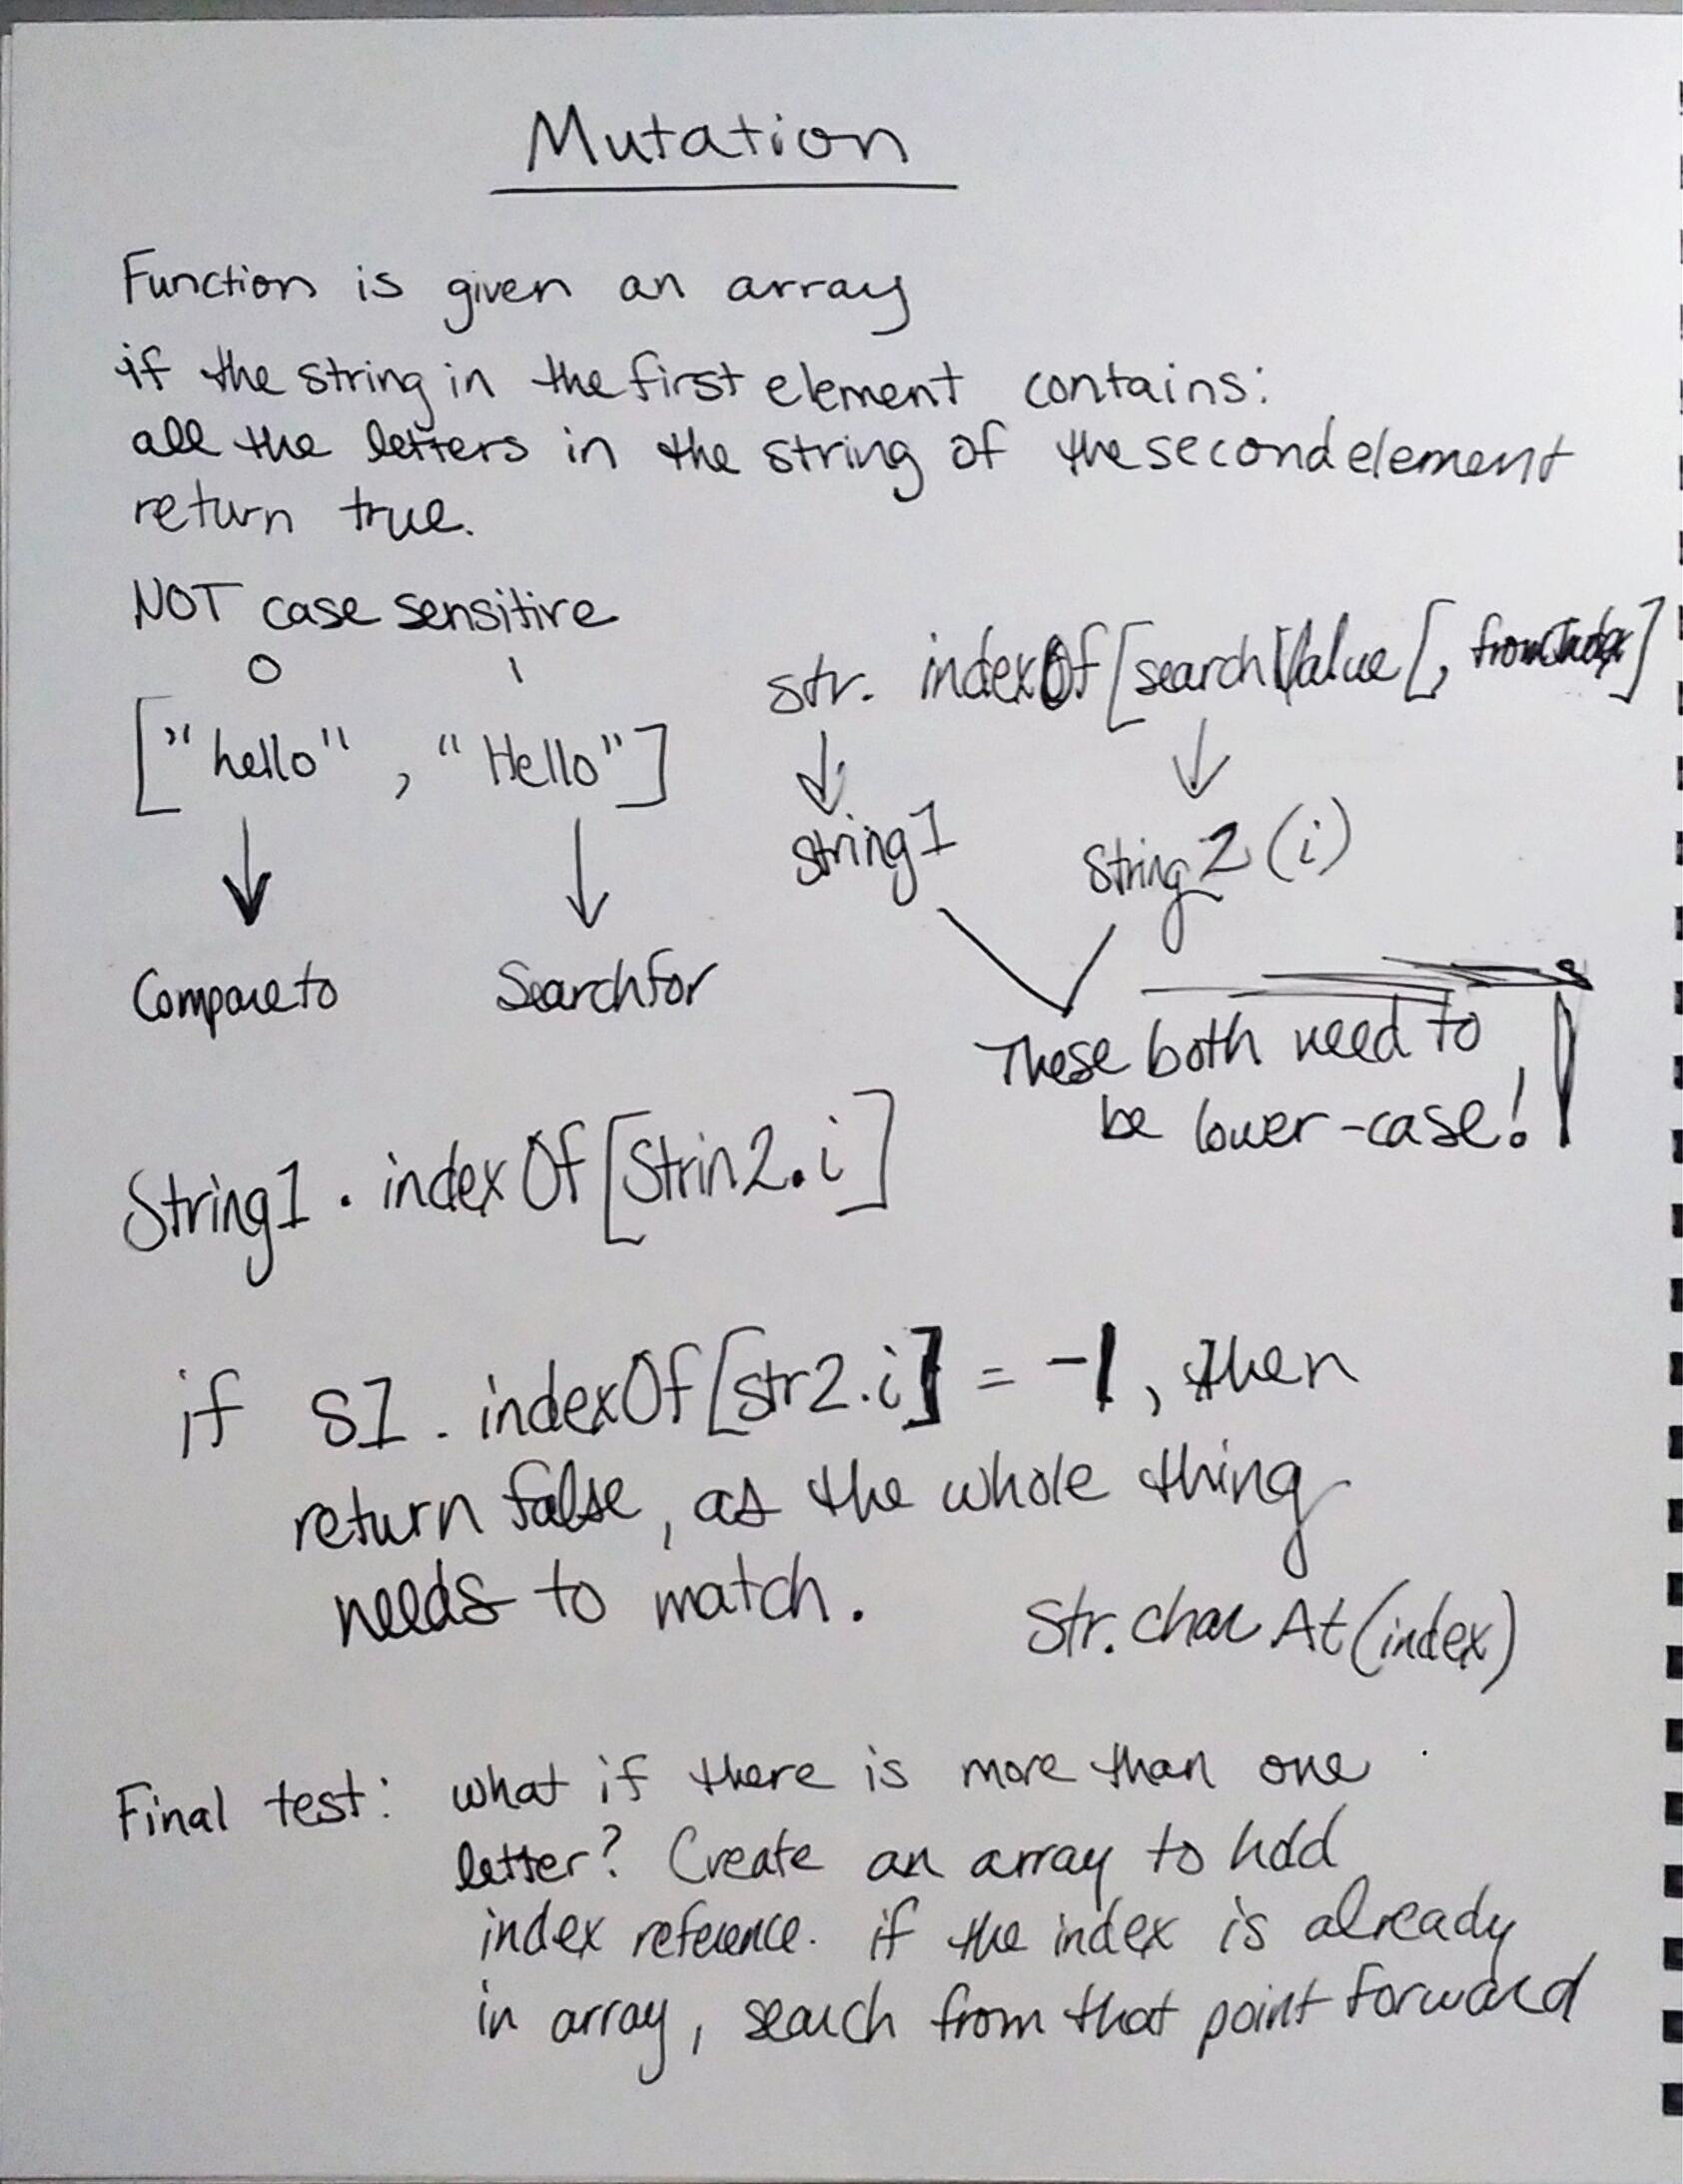 Mutation
Function is given an array
if the string in the first element contains:
all the letters in the string of the second element
return true.
NOT case sensitive
0 1
["hello", "Hello"]
Compare to Search for
str. indexOf[searchValue[, fromIndex]
string1 String2(i)
These both need to
be lower-case!
String1.indexOf[Strin2.i]
if S1.indexOf[str2.i] = -1, then
return false, as the whole thing
needs to match.
Str.charAt(index)
Final test: what if there is more than one
letter? Create an array to hold
index reference. if the index is already
in array, search from that point forward